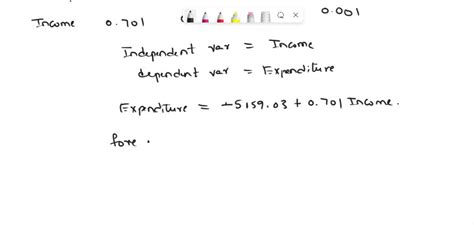 Income 0.701 0.001
Independent var = Income
dependent var = Expenditure
Expnditure = -5159.03 + 0.701 Income.
fore